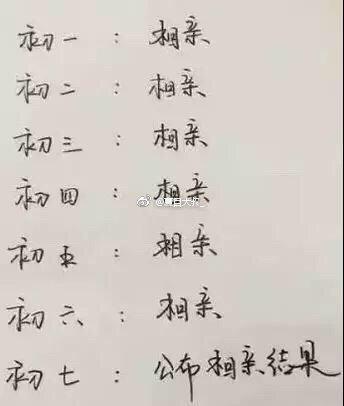 初一：相亲
初二：相亲
初三：相亲
初四：相亲
初五：相亲
初六：相亲
初七：公布相亲结果